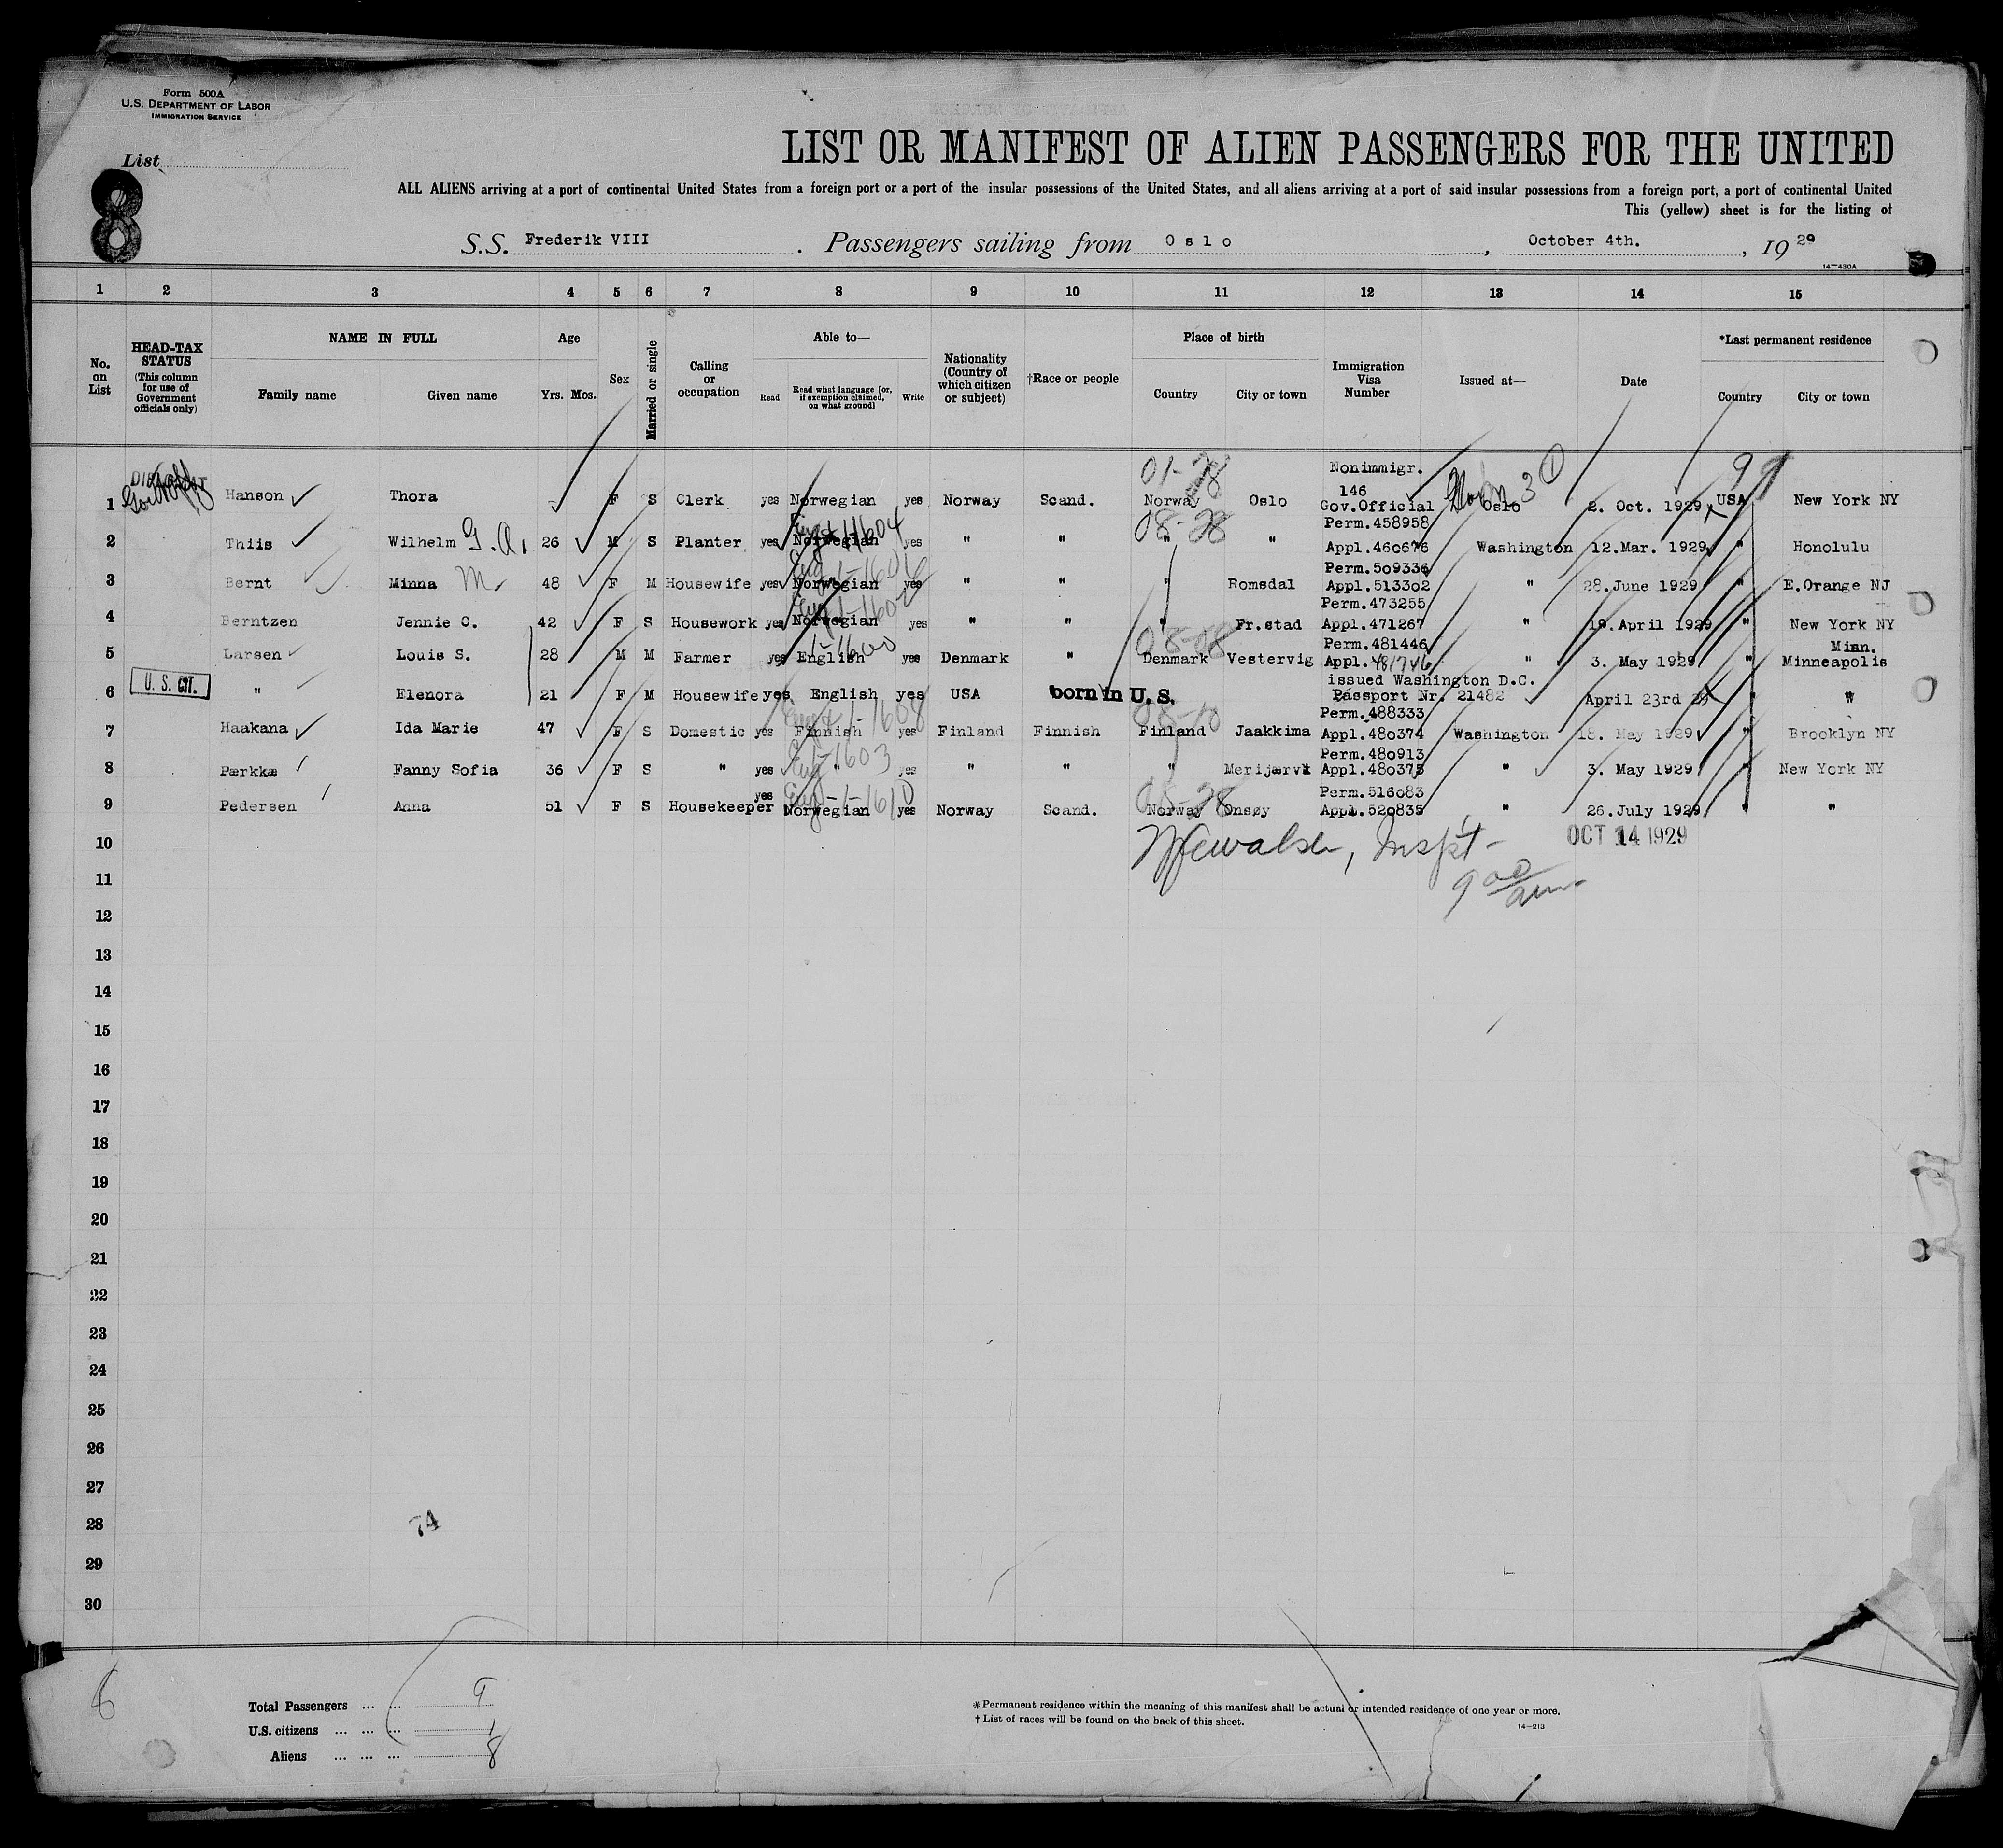 Form 500A
U.S. DEPARTMENT OF LABOR
IMMIGRATION SERVICE
List
8
LIST OR MANIFEST OF ALIEN PASSENGERS FOR THE UNITED
ALL ALIENS arriving at a port of continental United States from a foreign port or a port of the insular possessions of the United States, and all aliens arriving at a port of said insular possessions from a foreign port, a port of continental United
This (yellow) sheet is for the listing of
S.S. Frederik VIII . Passengers sailing from Oslo , October 4th. , 19 29
14—430A
1 2 3 4 5 6 7 8 9 10 11 12 13 14 15
No. on List
HEAD-TAX STATUS (This column for use of Government officials only)
NAME IN FULL
Family name Given name
Age
Yrs. Mos.
Sex
Married or single
Calling or occupation
Able to—
Read Read what language [or, if exemption claimed, on what ground] Write
Nationality (Country of which citizen or subject)
†Race or people
Place of birth
Country City or town
Immigration Visa Number
Issued at—
Date
*Last permanent residence
Country City or town
01-28 Nonimmigr. 99
1 Hanson Thora F S Clerk yes Norwegian yes Norway Scand. Norway Oslo 146 Gov.Official Oslo 2. Oct. 1929 USA New York NY
08-28 Perm.458958
2 Thiis Wilhelm G. A. 26 M S Planter yes Norwegian yes " " " " Appl.460676 Washington 12.Mar. 1929 " Honolulu
Perm.509336
3 Bernt Minna M. 48 F M Housewife yes Norwegian yes " " " Romsdal Appl.513302 " 28.June 1929 " E.Orange NJ
Perm.473255
4 Berntzen Jennie C. 42 F S Housework yes Norwegian yes " " Fr.stad Appl.471267 " 19.April 1929 " New York NY
08-08 Perm.481446 Minn.
5 Larsen Louis S. 28 M M Farmer yes English yes Denmark " Denmark Vestervig Appl.481746 " 3. May 1929 " Minneapolis
issued Washington D.C.
6 U. S. CIT. " Elenora 21 F M Housewife yes English yes USA born in U. S. Passport Nr. 21482 April 23rd 29 " "
08-10 Perm.488333
7 Haakana Ida Marie 47 F S Domestic yes Finnish yes Finland Finnish Finland Jaakkima Appl.480374 Washington 18. May 1929 " Brooklyn NY
Eng 1-1603 Perm.480913
8 Pærkkæ Fanny Sofia 36 F S " yes " yes " " " Merijærvi Appl.480375 " 3. May 1929 " New York NY
Eng-1-1610 08-28 Perm.516083
9 Pedersen Anna 51 F S Housekeeper yes Norwegian yes Norway Scand. Norway Onsøy Appl.520835 " 26.July 1929 " "
10 Inspt- OCT 14 1929
11 9 00 am
12
13
14
15
16
17
18
19
20
21
22
23
24
25
26
27
28
74
29
30
6
Total Passengers ... ... 9
U.S. citizens ... ... ... 1
Aliens ... ... ... 8
*Permanent residence within the meaning of this manifest shall be actual or intended residence of one year or more.
† List of races will be found on the back of this sheet.
14—213